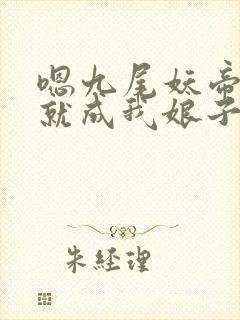 嗯九尾妖帝
就成我娘子
朱经理